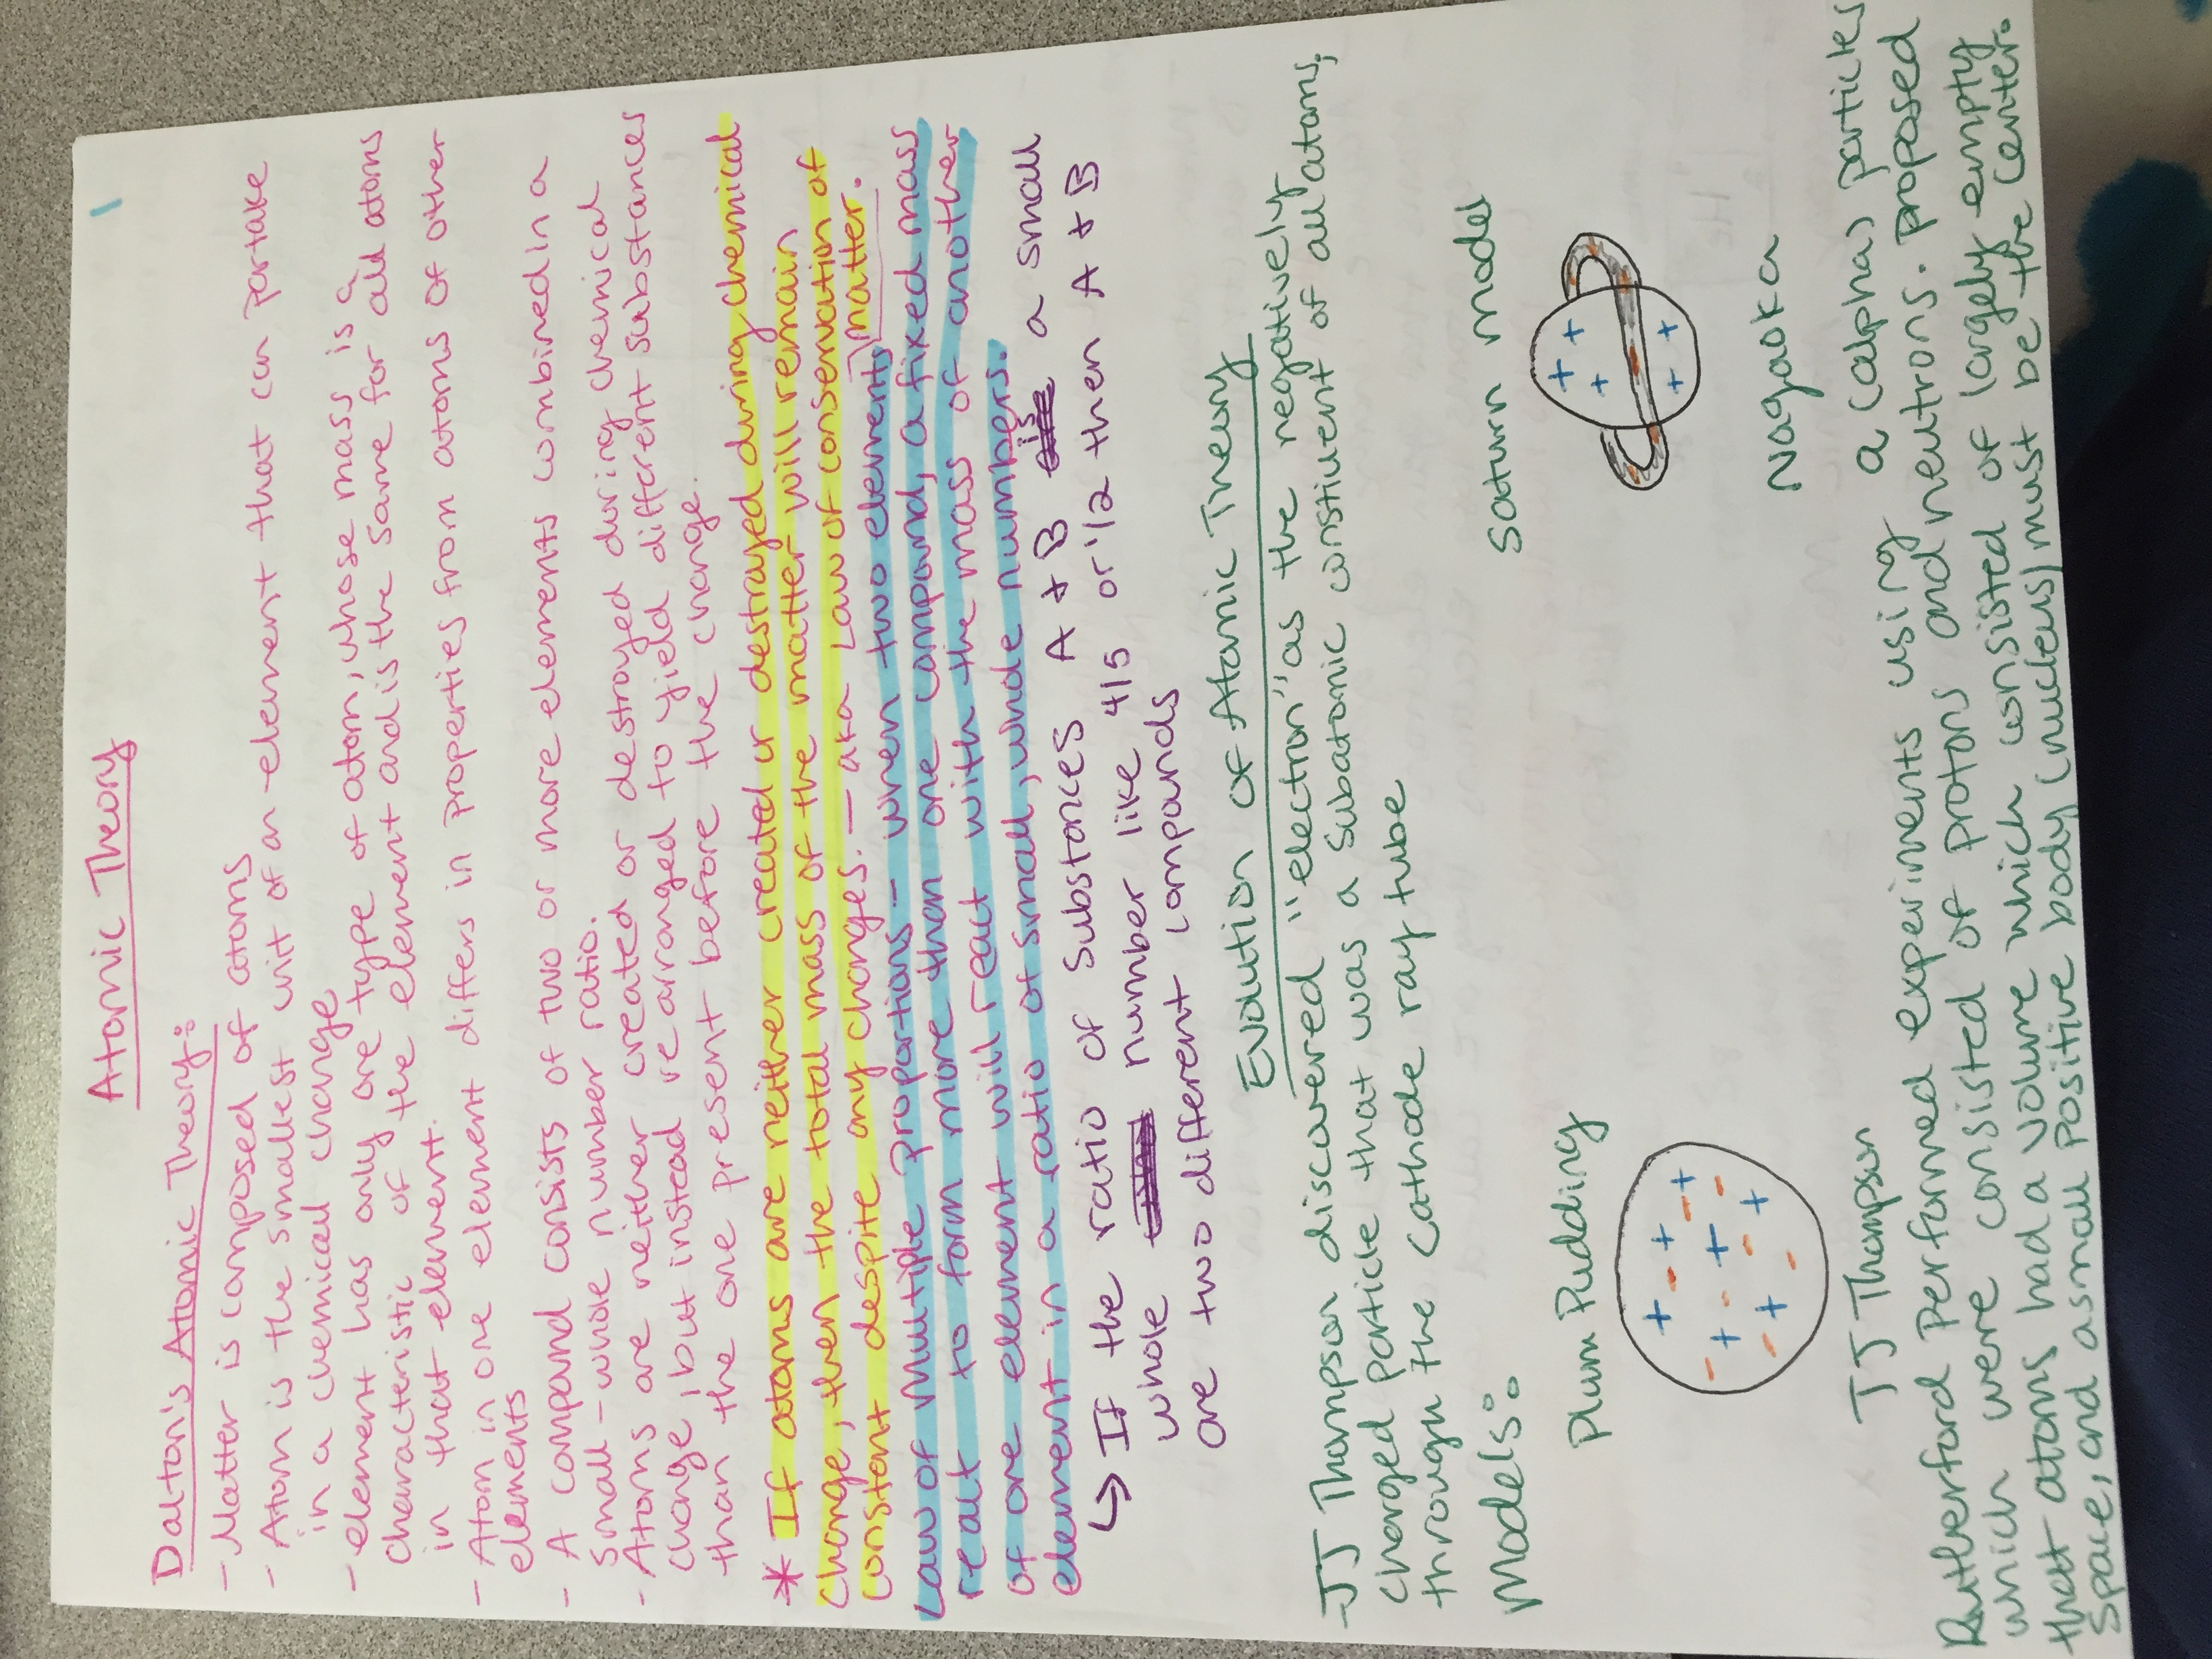 Atomic Theory
Dalton's Atomic Theory:
- Matter is composed of atoms
- Atom is the smallest unit of an element that can partake
in a chemical change
- element has only one type of atom, whose mass is a
characteristic of the element and is the same for all atoms
in that element.
- Atom in one element differs in properties from atoms of other
elements
- A compound consists of two or more elements combined in a
small-whole number ratio.
- Atoms are neither created or destroyed during chemical
change, but instead rearranged to yield different substances
than the one present before the change.
* If atoms are neither created or destroyed during chemical
change, then the total mass of the matter will remain
constant despite any changes. - aka Law of conservation of
matter.
Law of Multiple Proportions - when two elements
react to form more than one compound, a fixed mass
of one element will react with the mass of another
element in a ratio of small, whole numbers.
↳ If the ratio of substances A + B is a small
whole number like 4/5 or 1/2 then A + B
are two different compounds
Evolution of Atomic Theory
- JJ Thompson discovered "electron" as the negatively
charged particle that was a subatomic constiuent of all atoms,
through the cathode ray tube
Models:
Plum Pudding
Saturn model
+ + + + + + +
- - - - - - - -
+ + + + +
JJ Thompson
Nagaoka
Rutherford performed experiments using a (alpha) particles
which were consisted of protons and neutrons. proposed
that atoms had a volume which consisted of largely empty
space, and a small positive body (nucleus) must be the center.